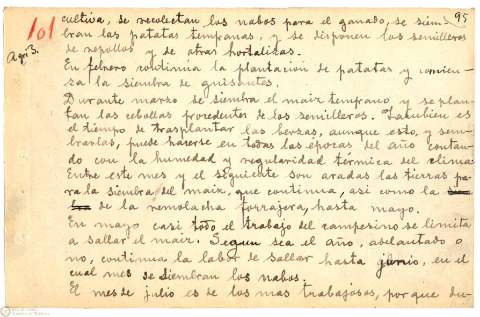 95
101
Agri 3.
cultiva, se recolectan los nabos para el ganado, se siem-
bran las patatas tempranas, y se disponen los semilleros
de repollos y de otras hortalizas.
En febrero continúa la plantación de patatas y comien-
za la siembra de guisantes.
Durante marzo se siembra el maiz temprano, y se plan-
tan las cebollas procedentes de los semilleros. Tambien es
el tiempo de trasplantar las berzas, aunque esto, y sem-
brarlas, puede hacerse en todas las epocas del año contan-
do con la humedad y regularidad térmica del clima.
Entre este mes y el siguiente son aradas las tierras pa-
ra la siembra del maiz, que continua, asi como la
de la remolacha forrajera, hasta mayo.
En mayo casi todo el trabajo del campesino se limita
a sallar el maiz. Segun sea el año, adelantado o
no, continua la labor de sallar hasta junio, en el
cual mes se siembran los nabos.
El mes de julio es de los mas trabajosos, porque du-